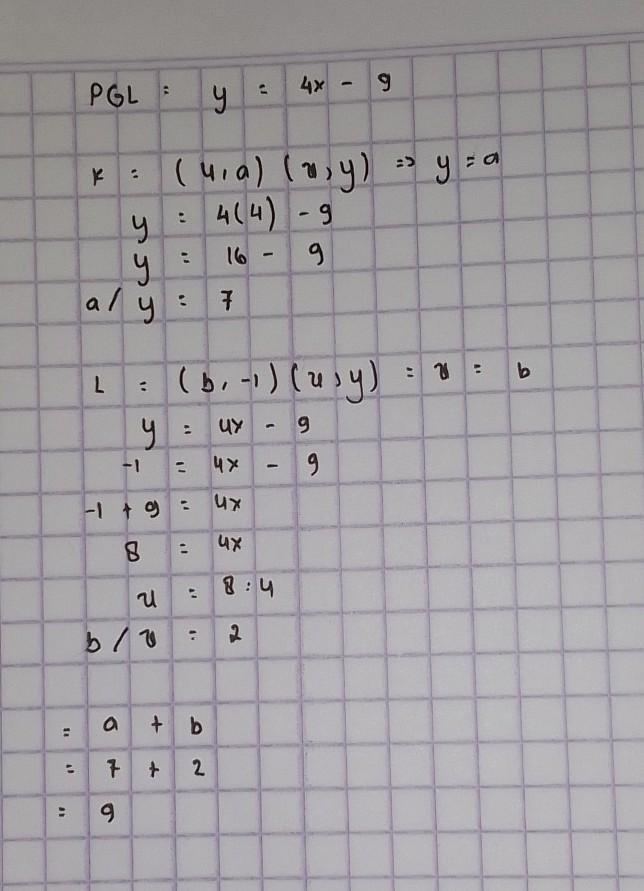 PGL : y = 4x - 9
K : (4, a) (x, y) => y = a
y = 4(4) - 9
y = 16 - 9
a / y = 7
L = (b, -1) (x, y) = x = b
y = 4x - 9
-1 = 4x - 9
-1 + 9 = 4x
8 = 4x
x = 8 : 4
b / x = 2
= a + b
= 7 + 2
= 9